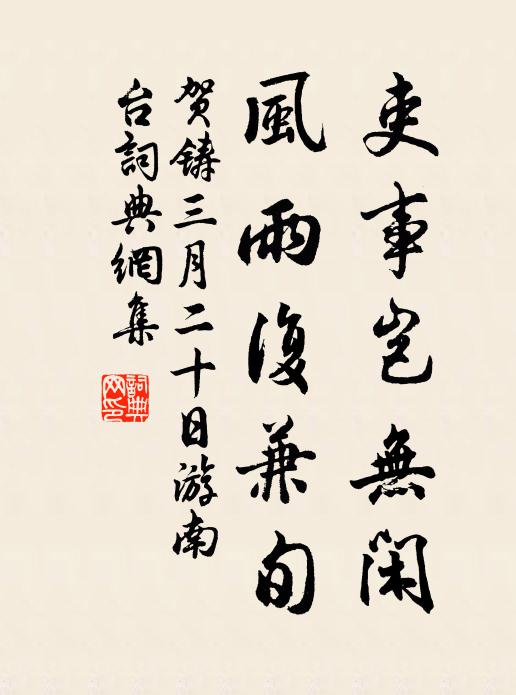 吏事岂無閑
風雨復兼旬
贺鑄三月二十日游南
台詞典網集
詞典
网印